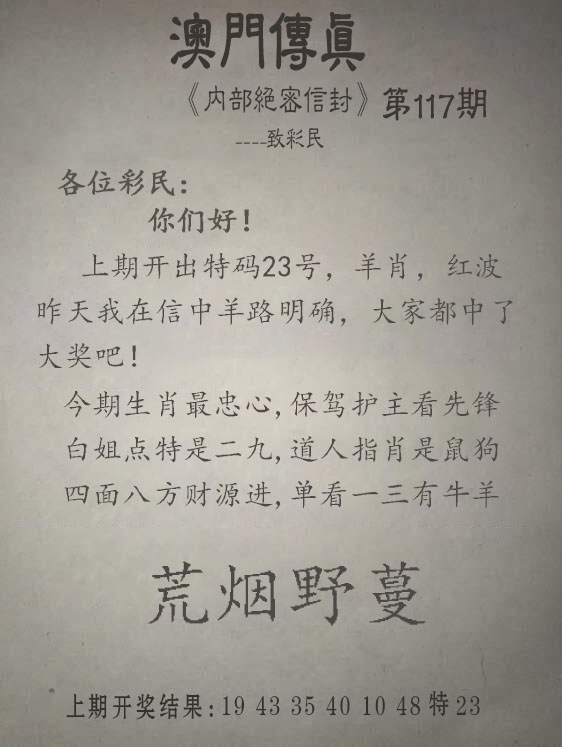 澳門傳眞
《内部絕密信封》第117期
----致彩民
各位彩民:
你们好!
上期开出特码23号，羊肖，红波
昨天我在信中羊路明确，大家都中了
大奖吧!
今期生肖最忠心,保驾护主看先锋
白姐点特是二九,道人指肖是鼠狗
四面八方财源进,单看一三有牛羊
荒烟野蔓
上期开奖结果:19 43 35 40 10 48 特 23